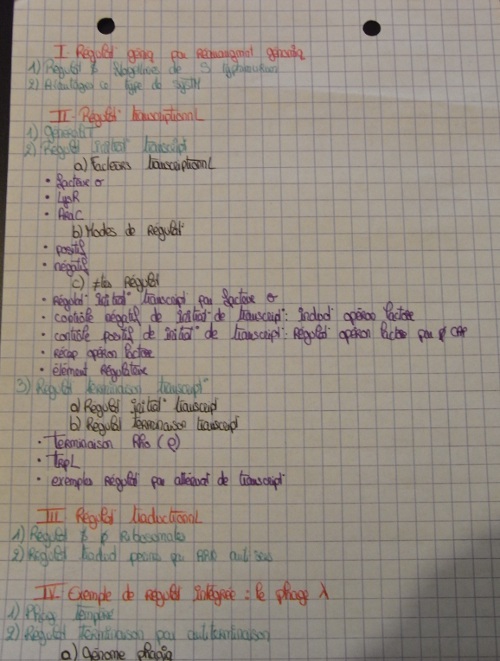 I Régulat° géniq par réarrangmnt génomiq
1) Régulat° ß flagelline de S typhimurium
2) Avantages ce type de systM
II - Régulat° transcriptionL
1) GénéraliT
2) Régulat° initiat° transcript°
a) Facteurs transcriptionL
• facteur σ
• LysR
• AraC
b) Modes de régulat°
• positif
• négatif
c) ≠tes Régulat°
• régulat° initiat° transcript° par facteur σ
• contrôle négatif de initiat° de transcript° : induct° opéron lactose
• contrôle positif de initiat° de transcript° : Régulat° opéron lactose par CAP
• récap opéron lactose
• élément régulatoire
3) Régulat° terminaison transcript°
a) Régulat° initiat° transcript
b) Régulat° terminaison transcript
• Terminaison Rho (ρ)
• TrpL
• exemples régulat° par atténuat° de transcript°
III Régulat° traductionL
1) Régulat° ß ribosomales
2) Régulat° traduct° par ARN antisens
IV - Exemple de régulat° intégrée : le phage λ
1) Phage tempéré
2) Régulat° terminaison par antiterminaison
a) Génome phagiq